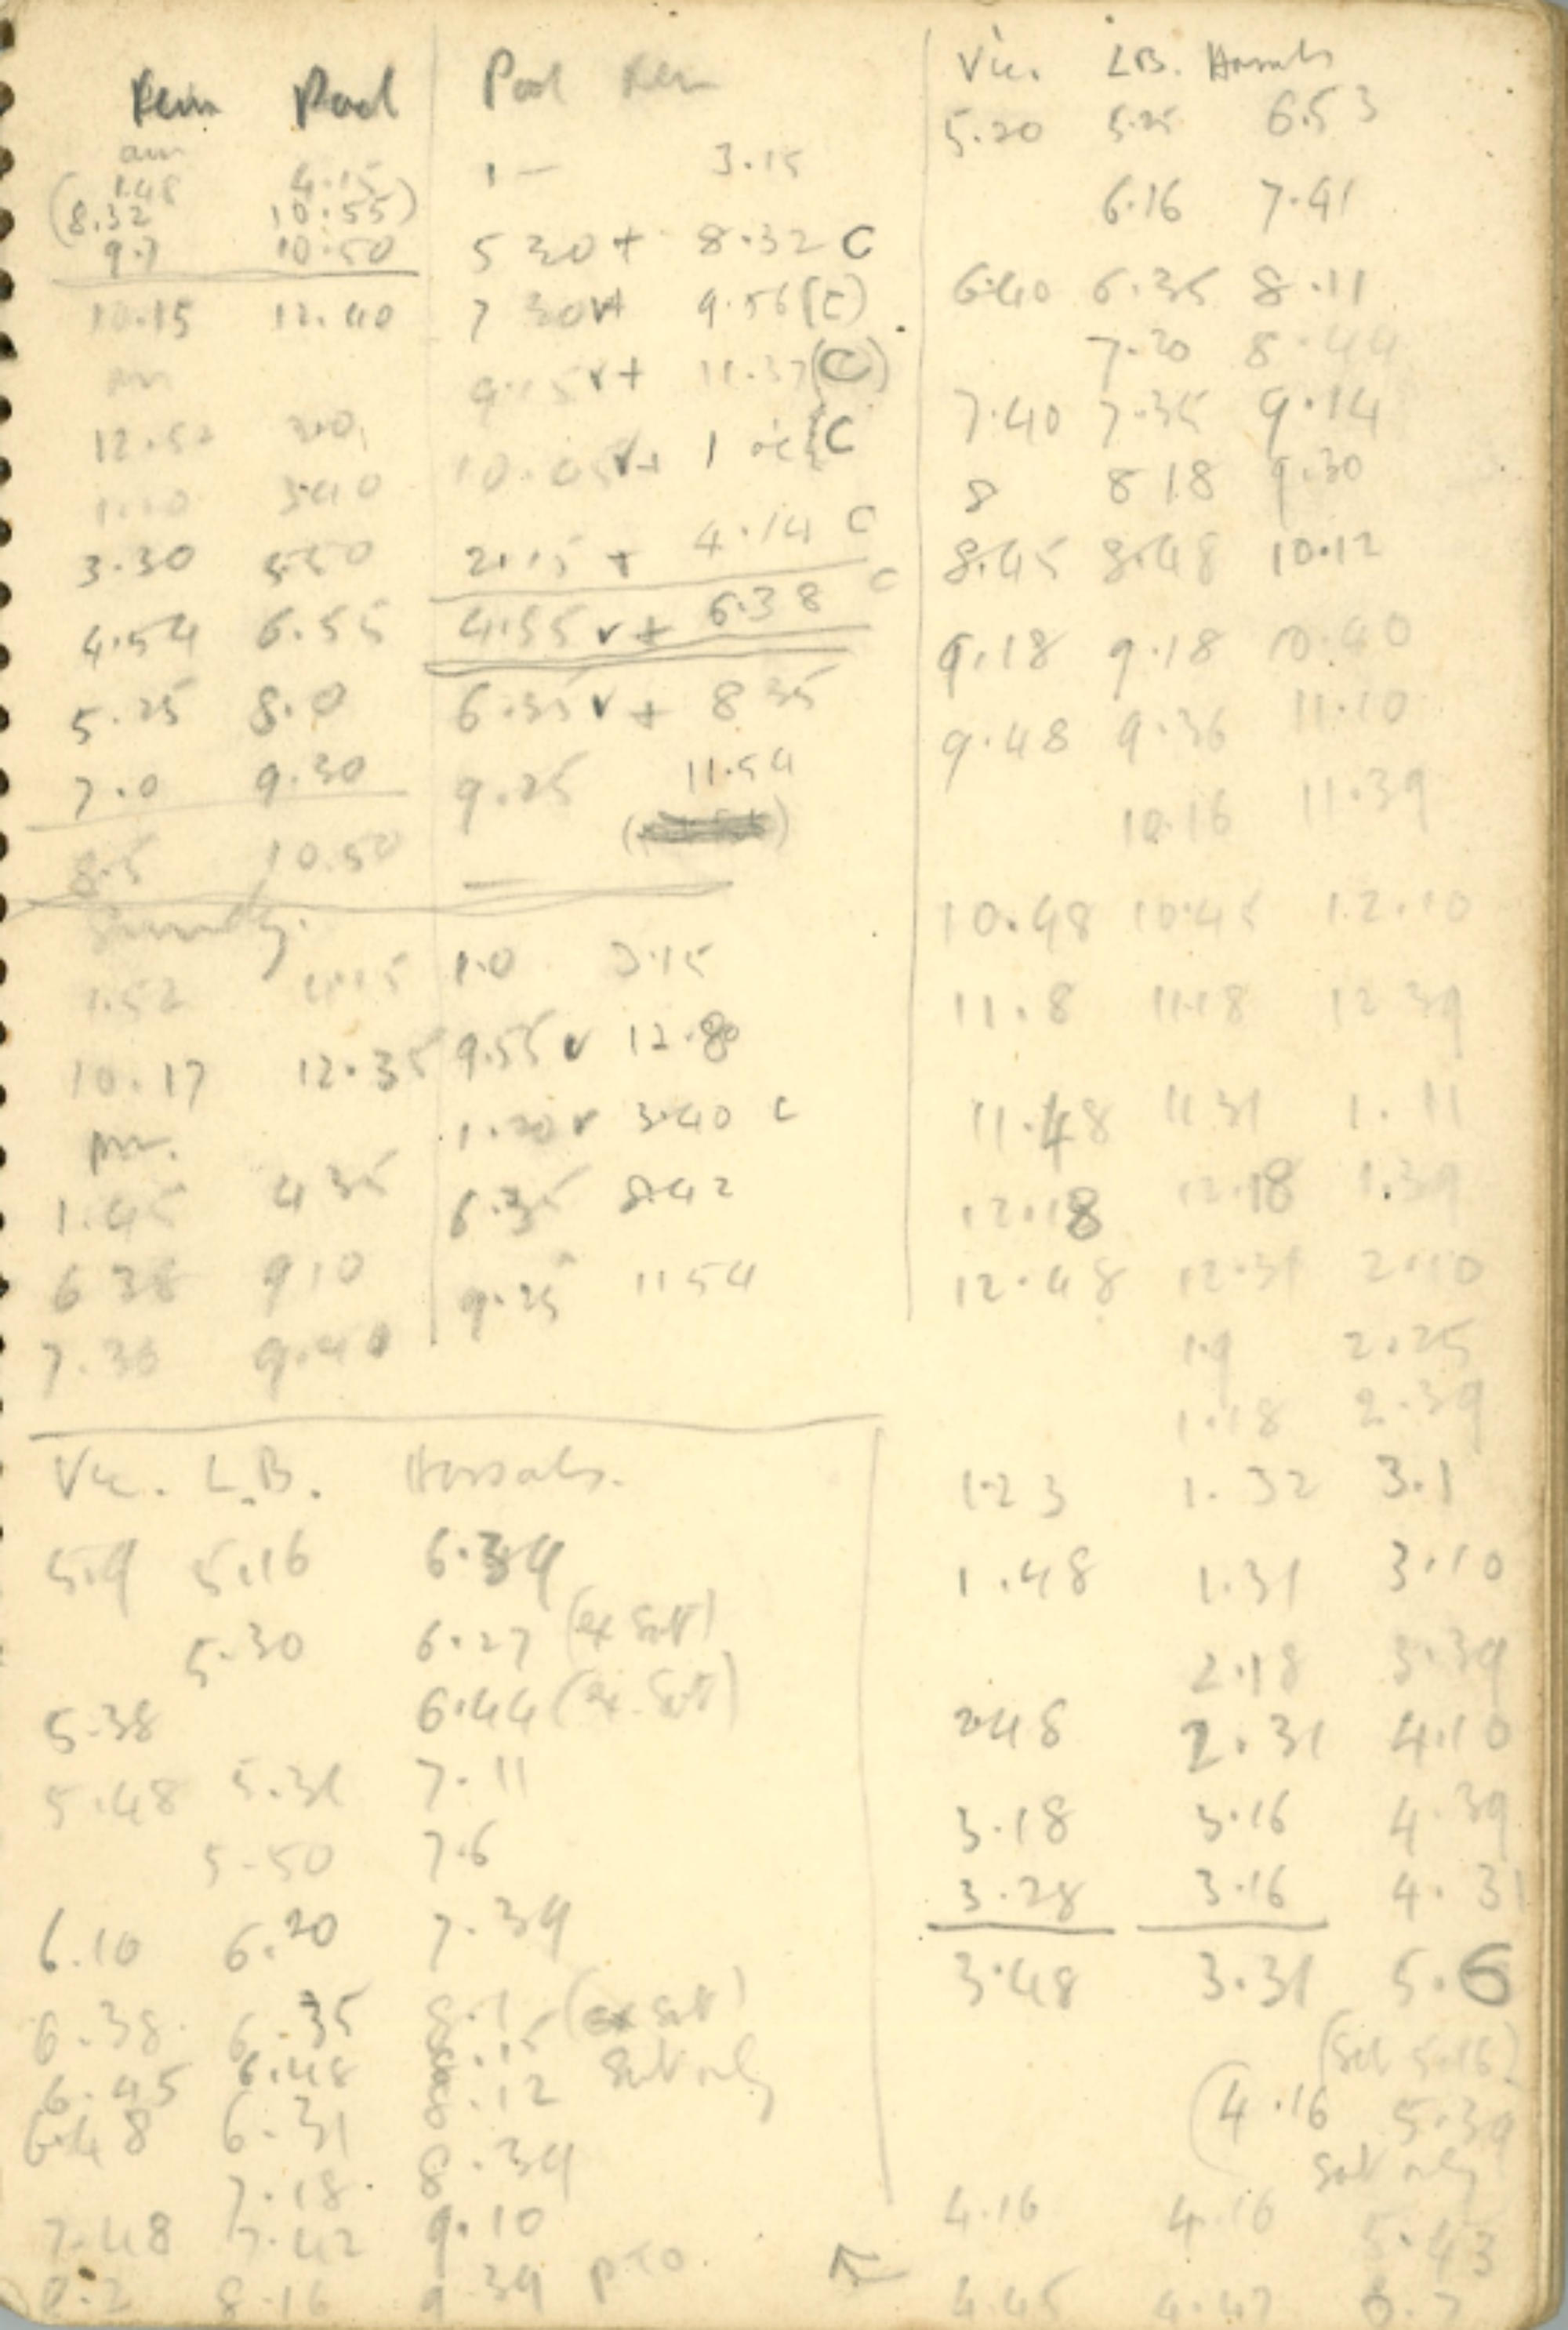 Pool Pool
am
1.48 4.15
(8.32 10.55)
9.7 10.50
10.15 12.40
pm
12.52 3.0
3.40
3.30 5.50
4.54 6.55
5.25 8.0
7.0 9.30
8.5 10.50
Sunday.
1.52 4.15
10.17 12.35
pm.
1.45 4 35
6 38 9 10
7.30 9.40
1 — 3.15
5 30 + 8.32 C
7 30 v+ 9.56 (C)
9.15 v+ 11.37 (C)
10.05 v+ 1
C
2.15 + 4.14 C
4.55 v + 6.38 C
6.35 v + 8 35
9.25 11.54
1.0 3.15
9.55 v 12.80
1.20 v 3.40 C
6.35 8.42
9.25 11 54
Vic. L.B. Hassocks.
5.9 5.16 6.39
5.30 6.27 (ex Satt)
5.38 6.44 (ex. Satt)
5.48 5.31 7.11
5-50 7.6
6.10 6.20 7.39
6.38. 6.35 8.1 (ex Satt)
6.45 6.48 8.15 Satt only
6.48 6.31 8.12
7.18. 8.39
7.48 7.42 9.10
8.2 8.16 9 39 PTO.
Vic. L.B. Hassocks
5.20 5.25 6.53
6.16 7.41
6.40 6.35 8.11
7.20 8.44
7.40 7.35 9.14
8 8 18 9.30
8.45 8.48 10.12
9.18 9.18 10.40
9.48 9.36 11.10
10.16 11.39
10.48 10.45 12.10
11.8 11.18 12 39
11.48 11 31 1.11
12.18 12.18 1.39
12.48 12.31 2.10
1.9 2.25
1.18 2.39
1.23 1.32 3.1
1.48 1.31 3.10
2.18 3.39
2.48 2.31 4.10
3.18 3.16 4.39
3.28 3.16 4.31
3.48 3.31 5.6
(Sat 5.16)
(4.16 5.39
Satt only
4.16 4.16 5.43
4.45 4.47 6.7